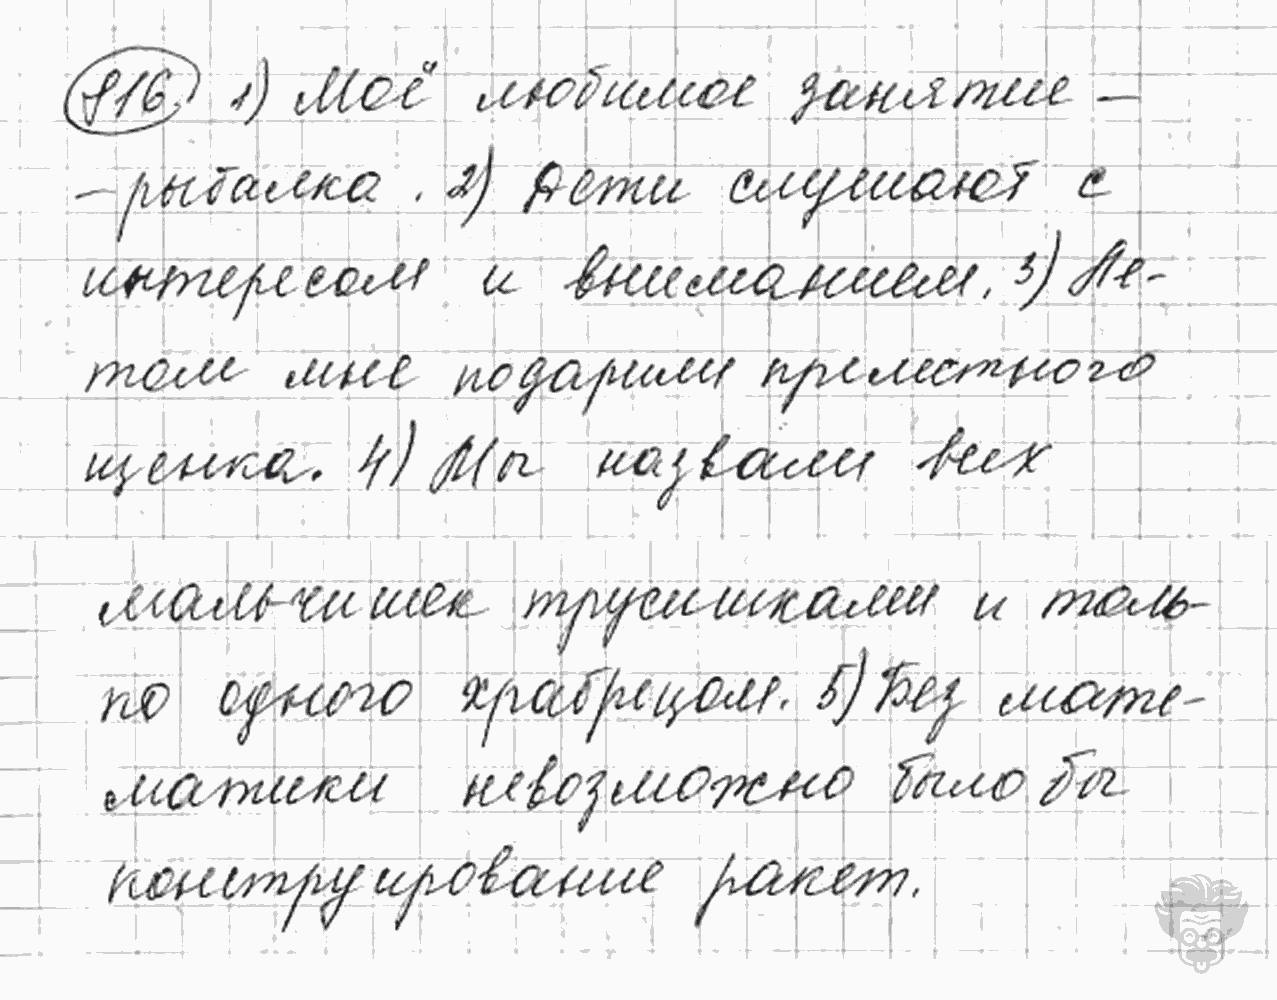 816. 1) Моё любимое занятие –
– рыбалка. 2) Дети слушают с
интересом и вниманием. 3) Ле-
том мне подарили прелестного
щенка. 4) Мы назвали всех
мальчишек трусишками и толь-
ко одного храбрецом. 5) Без мате-
матики невозможно было бы
конструирование ракет.